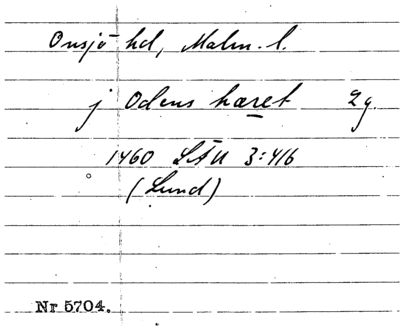 Onsjö hd, Malm. l.
j Odens hæret 2g.
1460 LÄU 3:416
(Lund)
Nr 5704.